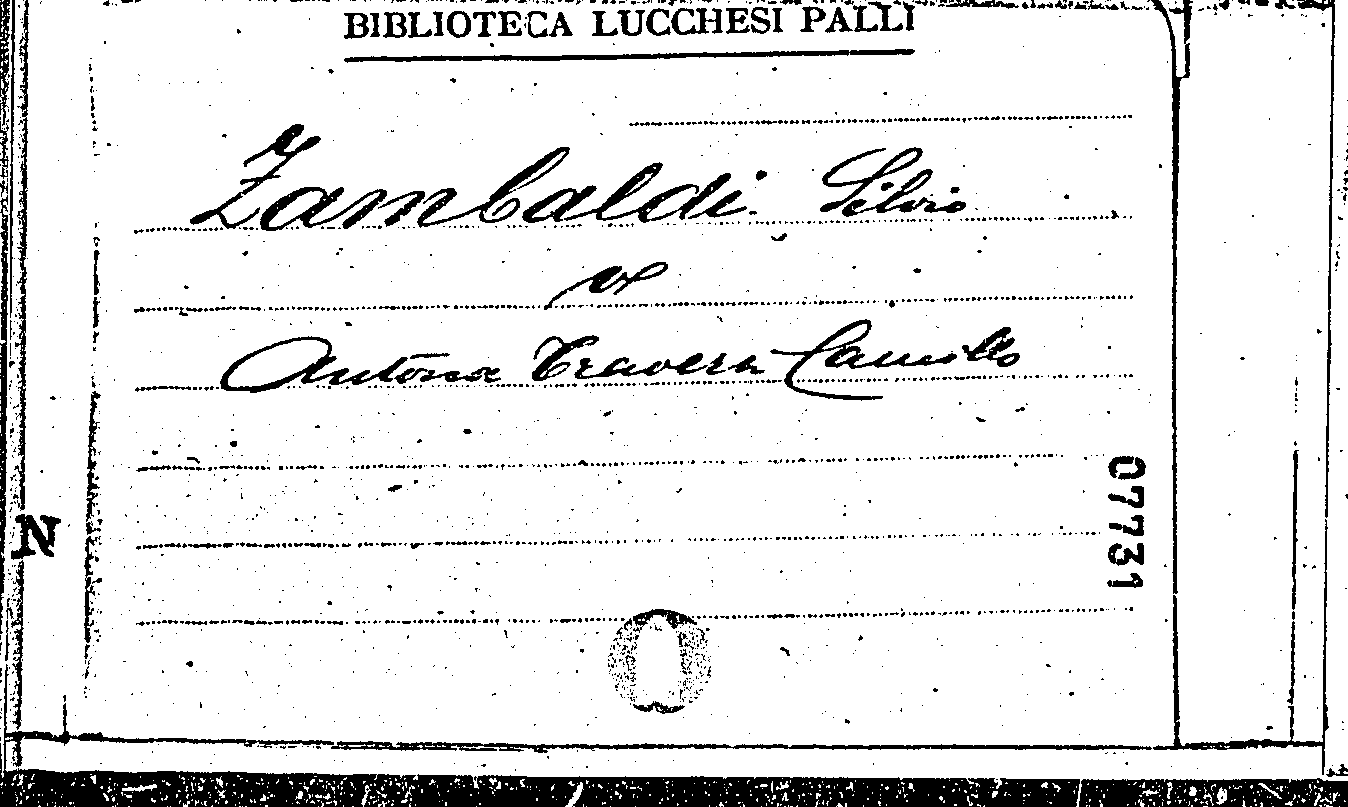 BIBLIOTECA LUCCHESI PALLI
Zambaldi Silvio
Antona Traversi Camillo
07731
N